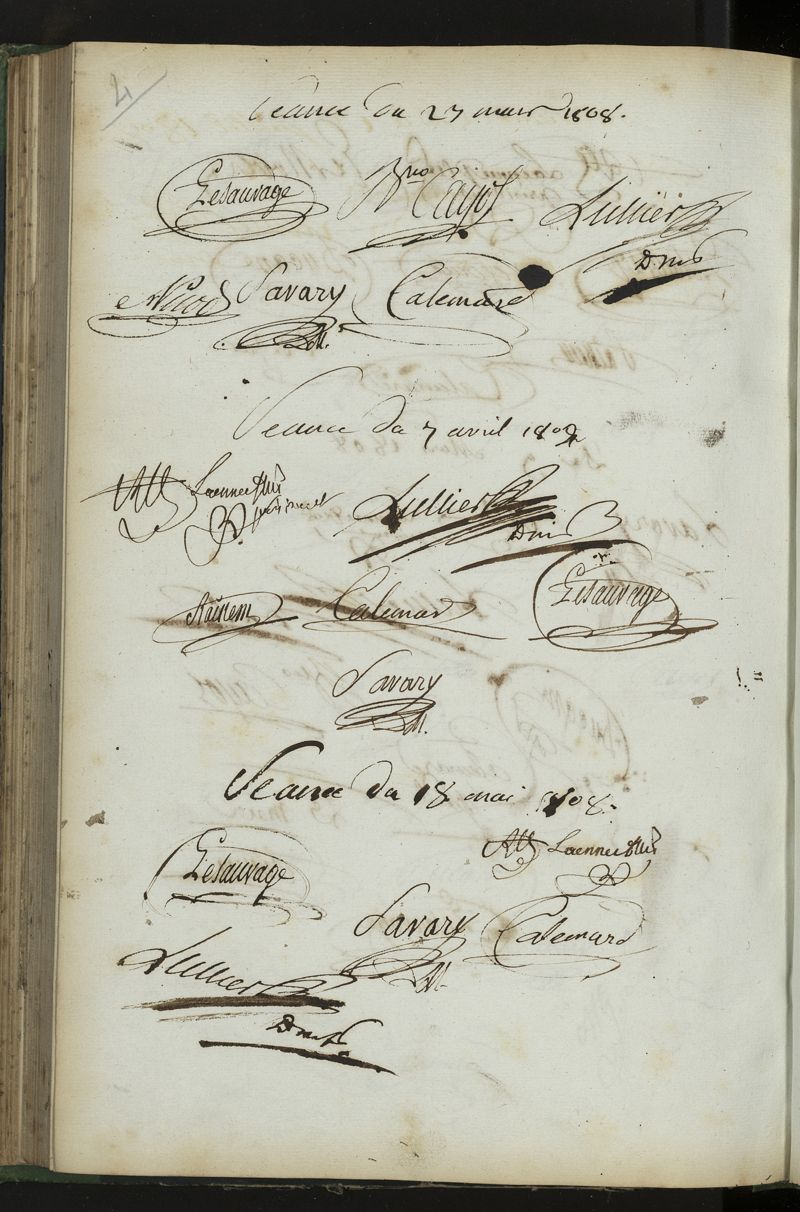 4
Séance du 27 mars 1808.
Lesauvage
Bno Cayol
Lullier
Dm
Savary
DM.
Calemard
Séance du 7 avril 1808
Laennec
Lullier
Dm
Calemard
Lesauvage
Savary
DM.
Séance du 18 mai 1808.
Laennec
Lesauvage
Savary
DM.
Calemard
Lullier
Dm